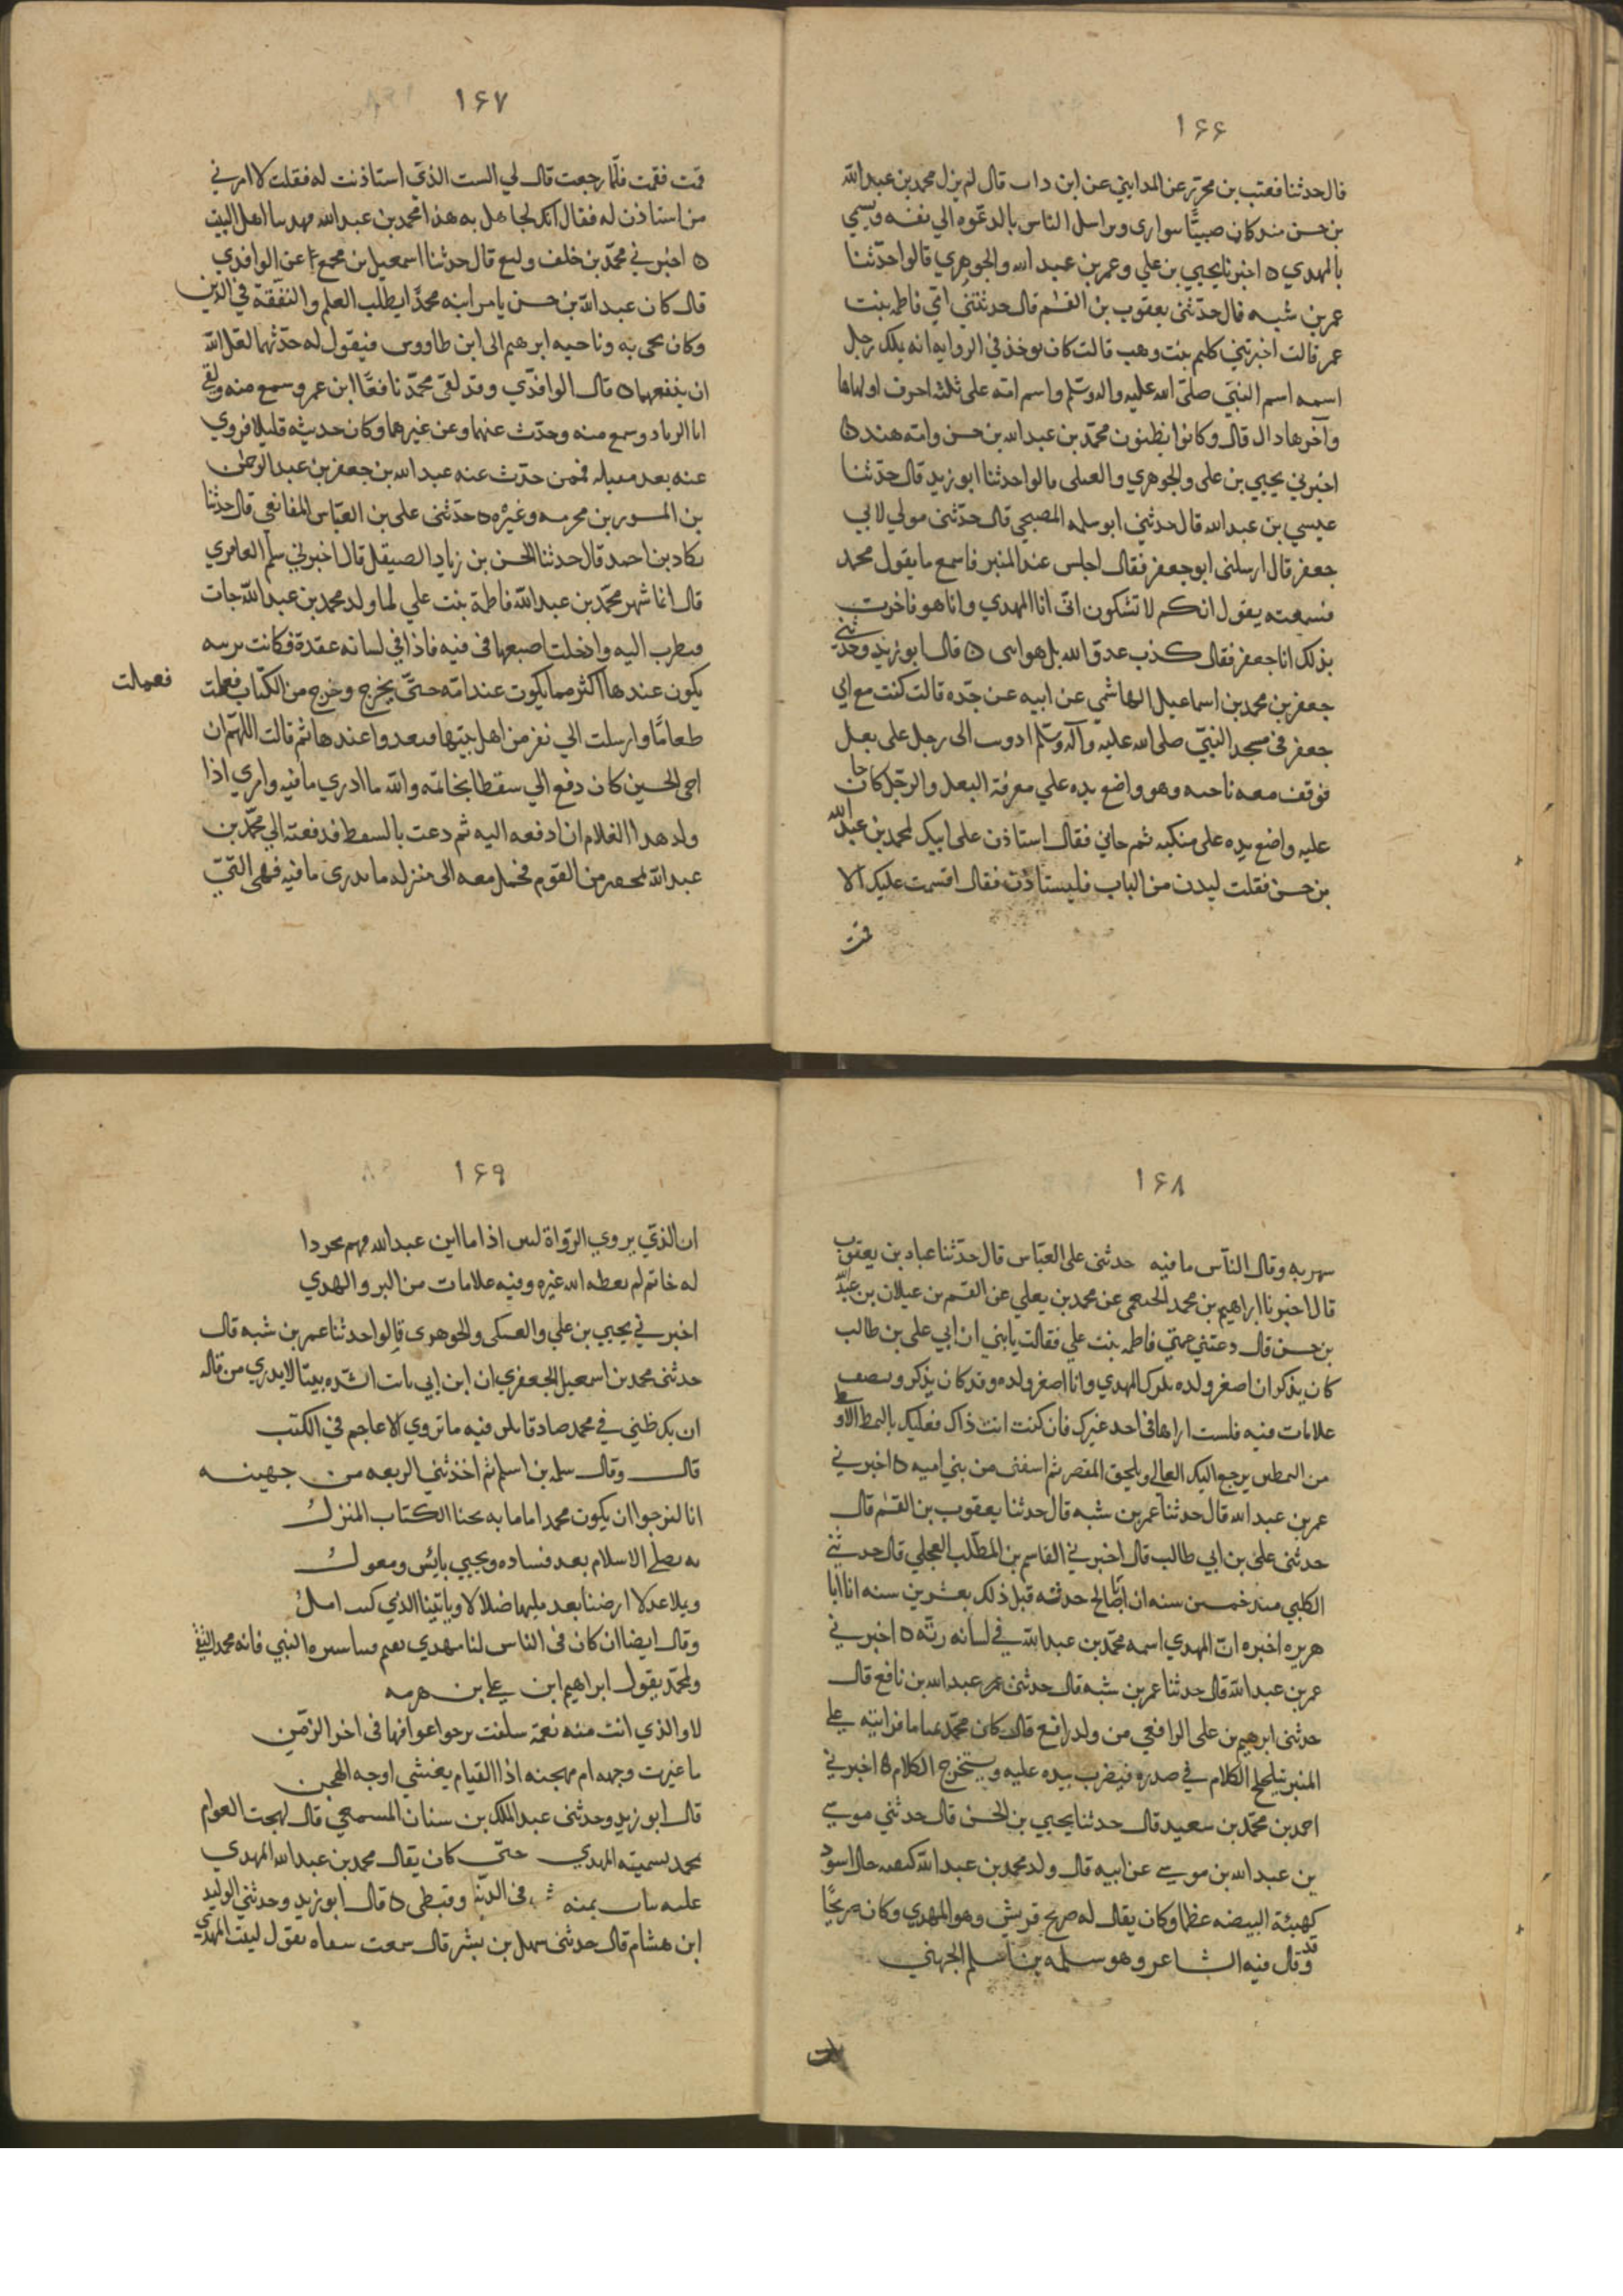 ١۶۶
قال حدثنا قعنب بن محرز عن المدايني عن ابن داب قال لم يزل محمد بن عبد الله
بن حسن منذ كان صبيًّا سوارى ويراسل الناس بالدعوه الي نفسه ويسمي
بالمهدي ه اخبرنا يحيي بن علي وعمر بن عبيد الله والجوهري قالوا حدّثنا
عمر بن شبه قال حدّثنى يعقوب بن القسم قال حدثتني امّي فاطمه بنت
عمر قالت اخبرتني كليم بنت وهب قالت كان يوخذ في الروايه انه يملك رجل
اسمه اسم النبيّ صلّى الله عليه واله وسّلم واسم امّه على ثلثه احرف اولها ها
وآخرها دال قال وكانوا يظنون محمّد بن عبد الله بن حسن وامّه هند ه
اخبرني يحيي بن على والجوهري والعىلى قالوا حدثنا ابو زيد قال حدّثنا
عيسي بن عبد الله قال حدثني ابو سلمه المصبحي قال حدّثنى مولي لابي
جعفر قال ارسلنى ابو جعفر فقال اجلس عند المنبر فاسمع ما يقول محمد
فسمعته يقول انكم لا تشكون انّى انا المهدي وانا هو فاخبرت
بذلك ابا جعفر فقال كذب عدوّ الله بل هو ابنى ه قال ابو زيد وحدّثني
جعفر بن محمد بن اسماعيل الهاشمي عن ابيه عن جدّه قالت كنت مع ابي
جعفر في مسجد النبيّ صلى الله عليه وآله وسّلم ادوب الى رجل على بغل
فوقف معه ناحيه وهو واضع يده علي معرفة البغل والرجّل كان حا
عليه واضع يده على منكبه ثم جاني فقال استاذن على ابيك لمحمد بن عبد الله
بن حسن فقلت ليدن من الباب فليستاذن فقال اقسمت عليك الا
قمت
١۶٧
قمت فقمت فلمّا رجعت قال لي الست الذّي استاذنت له فقلت لا امرني
من استاذن له فقال انك لجاهل به هذا محمد بن عبد الله مهدينا اهل البيت
ه اخبرني محمّد بن خلف وكيع قال حدثنا اسمعيل بن مجمع عن الواقدي
قال كان عبد الله بن حسن يامر ابنه محمّدًا يطلب العلم والتفقّه في الدّين
وكان يجى به وناحيه ابرهيم الى ابن طاووس فيقول له حدّثهما لعّل الله
ان ينفعهما ه قال الواقدّي وقد لقى محمّد نافعًا ابن عمر وسمع منه ولقي
ابا الزناد وسمع منه وحدّث عنهما وعن غيرهما وكان حديثه قليلا فروي
عنه بعد مقتله فممن حدّث عنه عبد الله بن جعفر بن عبد الرحمن
بن المسور بن مخرمه وغيره ه حدّثنى على بن العبّاس المقانعي قال حدثنا
بكار بن احمد قال حدثنا الحسن بن زياد الصيقل قال اخبرني سلم العامري
قال انما شهر محمّد بن عبد الله فاطمة بنت علي لما ولد محمد بن عبد الله جات
فنظرت اليه وادخلت اصبعها في فيه فاذا في لسانه عقدة فكانت
يكون عندها اكثر مما يكون عند امّه حتىّ يخرج وخرج من الكتّاب فعملت
فعملت
طعامًا وارسلت الي نفر من اهل بيتها فتغدوا عندها ثم قالت اللهّم ان
اخى الحسين كان دفع الي سفطا بخاتمه والله ما ادري ما فيه وامرني اذا
ولد هذا الغلام ان ادفعه اليه ثم دعت بالسفط فدفعته الي محمّد بن
عبد الله بمحضر من القوم فحمل معه الى منزله ما يدرى ما فيه فهى التّي
١۶٨
وقال النّاس ما فيه حدثنى على العبّاس قال حدّثنا عباد بن يعقوب
قال اخبرنا ابراهيم بن محمد الخثعمى عن محمد بن يعلي عن القسم بن غيلان بن عبد الله
بن حسن قال دعتني عمتي فاطمه بنت علي فقالت يا بني ان ابي على بن طالب
كان يذكر ان اصغر ولده يدرك المهدي وانا اصغر ولده وقد كان يذكر ويصف
علامات فيه فلست اراها في احد غيرك فان كنت انت ذاك فعليك بالنمط الاوسط
من النمطين يرجع اليك العالي ويلحق المقصر ثم اسفنى من بني اميه ه اخبرني
عمر بن عبد الله قال حدثنا عمر بن شبه قال حدثنا يعقوب بن القسم قال
حدثنى على بن ابي طالب قال اخبرني القاسم بن المطّلب العجلي قال حدثني
الكلبي منذ خمسين سنه ان ابا صالح حدثه قبل ذلك بعشرين سنه ان ابا
هريره اخبره انّ المهدي اسمه محمّد بن عبد الله في لسانه رتّه ه اخبرني
عمر بن عبد الله قال حدثنا عمر بن شبه قال حدثنى عمر عبد الله بن نافع قال
حدثنى ابرهيم بن على الرافعي من ولد رافع قال كان محمّد تمتاما فرايته علي
المنبر يتلجلج الكلام في صدره فيضرب بيده عليه ويستخرج الكلام ه اخبرني
احمد بن محمّد بن سعيد قال حدثنا يحيي بن الحسن قال حدثني موسي
بن عبد الله بن موسي عن ابيه قال ولد محمد بن عبد الله كتفيه خال اسود
كهيئة البيضه عظما وكان يقال له صريح قريش وهو المهدي وكان صريحًا
وقد قال فيه الشاعر وهو سلمه بن اسلم الجهني
١۶٩
ان الذّي يروي الرّواة لبين اذا ما ابن عبد الله فيهم تجردا
له خاتم لم يعطه الله غيره وفيه علامات من البر والهدي
اخبرني يحيي بن علي والعسكى والجوهرى قالوا حدثنا عمر بن شبه قال
حدثنى محمد بن اسمعيل الجعفري ان ابن ابي بات انشده بيتا لا يدري من قاله
ان يك ظني في محمد صادقا يكن فيه ما تروي الاعاجم في الكتب
قال وقال سلمه بن اسلم ثم اخذثني الربعه من جهينه
انا لنرجوا ان يكون محمد اماما به يحيا الكتاب المنزل
به يصلح الاسلام بعد فساده ويحيي يايس ومعول
ويملا عدلا ارضنا بعد مليها ضلالا وياتينا الذي كنت امل
وقال ايضا ان كان في الناس لنا مهدي يقيم فينا سيره النبي فانه محمد التقي
ولمحمّد يقول ابراهيم ابن علي بن هرمه
لا والذي انت منه نعمة سلفت نرجوا عواقبها في اخر الزمن
ما غيرت وجهه ام مهجنه اذا القيام يغشي اوجه الهجن
قال ابو زيد وحدثنى عبد الملك بن سنان المسمعي قال لهجت العوام
بمحمد تسميته المهدي حتىّ كان يقال محمد بن عبد الله المهدي
عليه ثياب يمنه وقبطى ه قال ابو زيد وحدثني الوليد
ابن هشام قال حدثنى سهل بن بشر قال سمعت يقول ليت المهدي